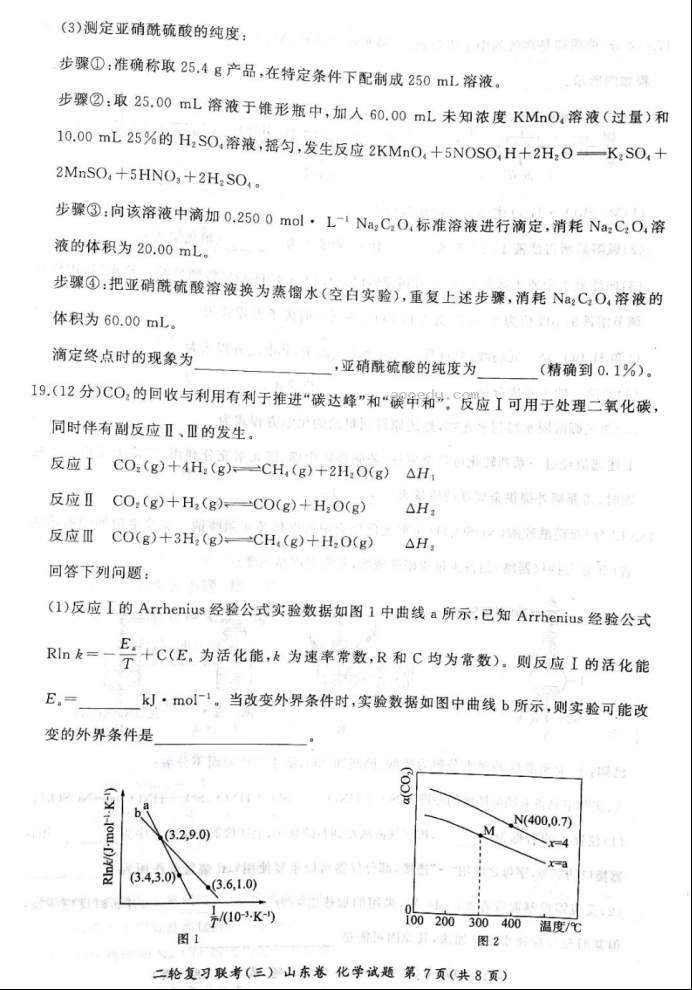 (3)测定亚硝酰硫酸的纯度：
步骤①:准确称取 25.4 g 产品,在特定条件下配制成 250 mL 溶液。
步骤②:取 25.00 mL 溶液于锥形瓶中,加入 60.00 mL 未知浓度 KMnO₄溶液(过量)和
10.00 mL 25%的 H₂SO₄溶液,摇匀,发生反应 2KMnO₄+5NOSO₄H+2H₂O══K₂SO₄+
2MnSO₄+5HNO₃+2H₂SO₄。
步骤③:向该溶液中滴加 0.250 0 mol· L⁻¹ Na₂C₂O₄标准溶液进行滴定,消耗 Na₂C₂O₄溶
液的体积为 20.00 mL。
步骤④:把亚硝酰硫酸溶液换为蒸馏水(空白实验),重复上述步骤,消耗 Na₂C₂O₄溶液的
体积为 60.00 mL。
滴定终点时的现象为____________,亚硝酰硫酸的纯度为________(精确到 0.1%)。
aooedy.com
19.(12 分)CO₂的回收与利用有利于推进“碳达峰”和“碳中和”。反应Ⅰ可用于处理二氧化碳,
同时伴有副反应Ⅱ、Ⅲ的发生。
反应Ⅰ CO₂(g)+4H₂(g)⇌CH₄(g)+2H₂O(g) ΔH₁
反应Ⅱ CO₂(g)+H₂(g)⇌CO(g)+H₂O(g) ΔH₂
反应Ⅲ CO(g)+3H₂(g)⇌CH₄(g)+H₂O(g) ΔH₃
回答下列问题：
(1)反应Ⅰ的 Arrhenius 经验公式实验数据如图 1 中曲线 a 所示,已知 Arrhenius 经验公式
Rln k=-Eₐ/T+C(Eₐ 为活化能,k 为速率常数,R 和 C 均为常数)。则反应Ⅰ的活化能
Eₐ=______kJ·mol⁻¹。当改变外界条件时,实验数据如图中曲线 b 所示,则实验可能改
变的外界条件是____________。
Rlnk/(J·mol⁻¹·K⁻¹)
b a
(3.2,9.0)
(3.4,3.0)
(3.6,1.0)
0
1/T/(10⁻³·K⁻¹)
图 1
α(CO₂)
N(400,0.7)
M
x=4
x=a
0
100 200 300 400 温度/℃
图 2
二轮复习联考(三) 山东卷 化学试题 第 7 页(共 8 页)